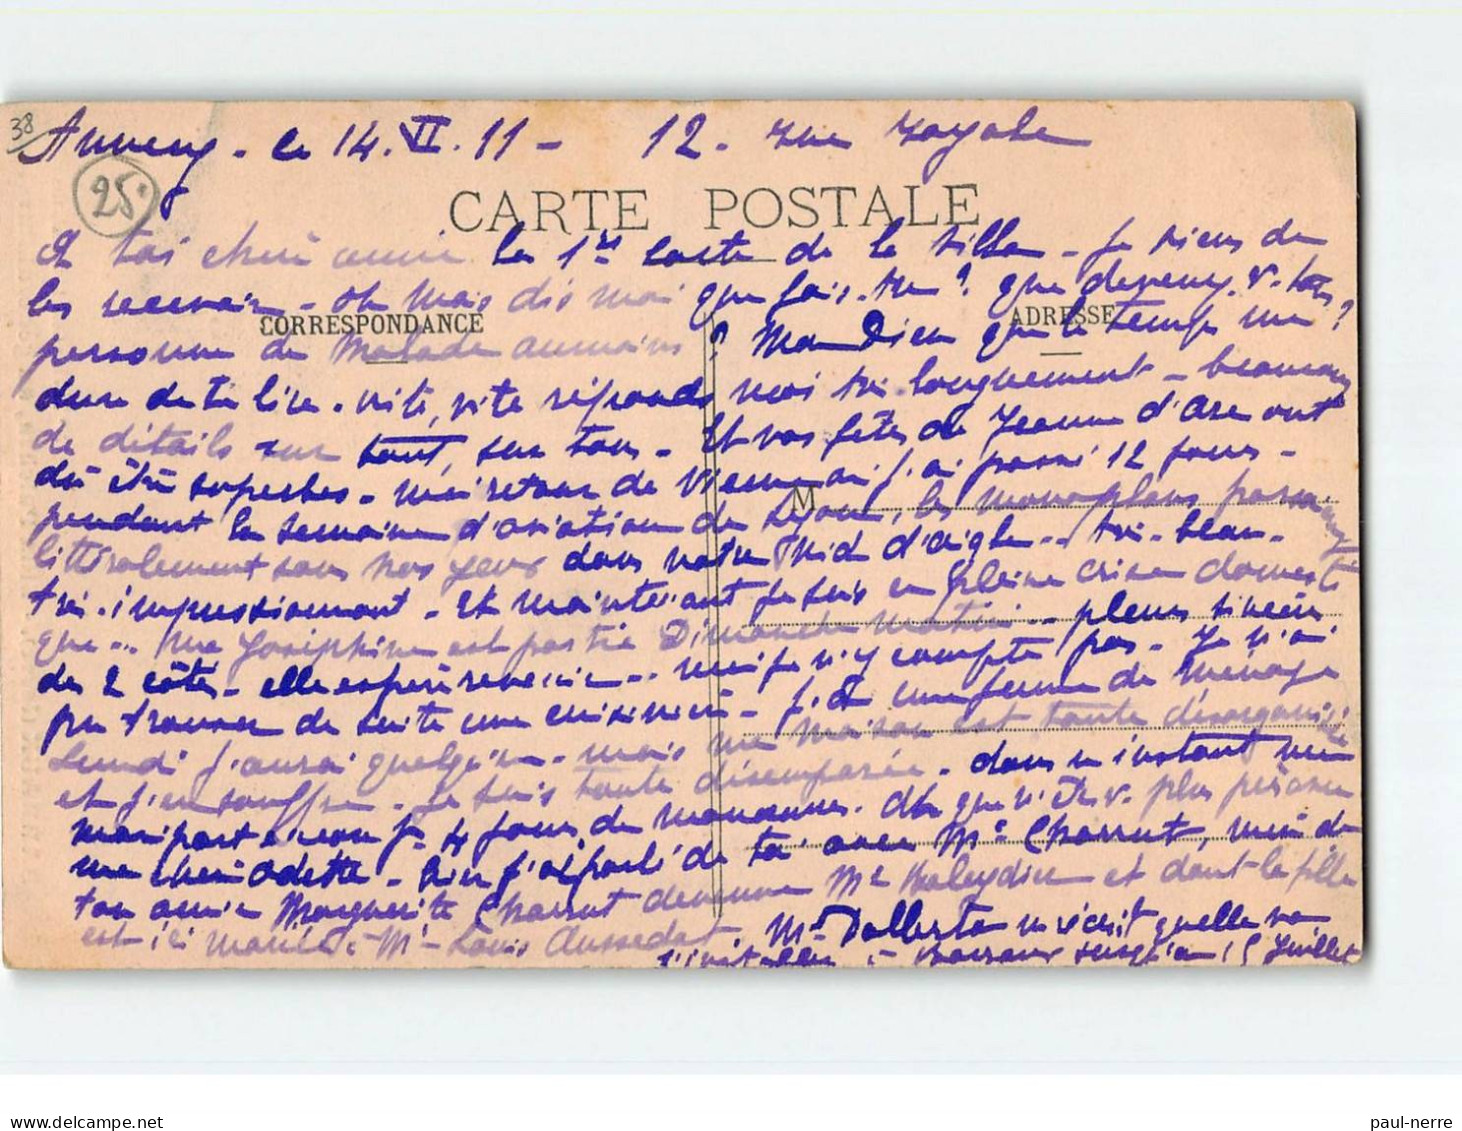 38
Annecy - le 14. VI. 11 - 12. rue Royale
25
CARTE POSTALE
A toi chère amie la 1re carte de la série - Je viens de
les recevoir - oh mais dis moi que fais-tu? que devenez-v. tous?
CORRESPONDANCE
ADRESSE
personne de malade au moins? Mon Dieu que le temps me
dure de te lire. vite, vite réponds moi très longuement - beaucoup
de détails sur tout, sur tous - Et vos fêtes de Jeanne d'Arc ont
dû être superbes - mon retour de Vienne où j'ai passé 12 jours -
M
pendant la semaine d'aviation de Lyon, les monoplans passaient
littéralement sous nos yeux dans notre Nid d'aigle - très beau -
très impressionnant - Et maintenant je suis en pleine crise domesti
que... Ma Joséphine est partie Dimanche matin... pleurs sincères
des 2 côtés - elle espère revenir... mais je n'y compte pas - Je n'ai
pu trouver de suite une cuisinière - J'ai une femme de ménage
Lundi j'aurai quelqu'un - mais ma maison est toute désorganisée
et j'en souffre. Je suis toute désemparée - dans un instant mon
mari part encore pr 4 jours de manœuvres. Oh que n'êtes v. plus près
ma chère Odette - Hier j'ai parlé de toi avec Me Charrut, mère de
ton amie Marguerite Charrut devenue Me et dont la fille
est ici mariée à Mr Louis Aussedat. Me Dalberto m'écrit qu'elle va
s'installer à jusqu'au 15 Juillet
paul-nerre